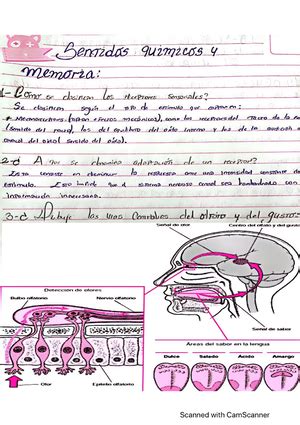 Sentidos químicos y
memoria:
1-¿Como se clasifican los receptores sensoriales?
Se clasifican según el tipo de estímulo que captan:
* Mecanorreceptores: (captan mecánicos), como los receptores del Tacto de la
(sentido del), los del equilibrio del oído interno y los de la audición
del oído (sentido del oído).
2-¿A que se denomina adaptación de un receptor?
Esto consiste en disminuir la respuesta ante una intensidad constante de
estímulo. Eso el sistema nervioso central sea bombardeado con
información innecesaria.
3-¿Dibuje las vias del olfato y del gusto
Señal de olor
Centro del olfato y del gusto
Detección de olores
Bulbo olfatorio
Nervio olfatorio
Señal de sabor
Áreas del sabor en la lengua
Dulce
Salado
Ácido
Amargo
Olor
Epitelio olfatorio
Scanned with CamScanner